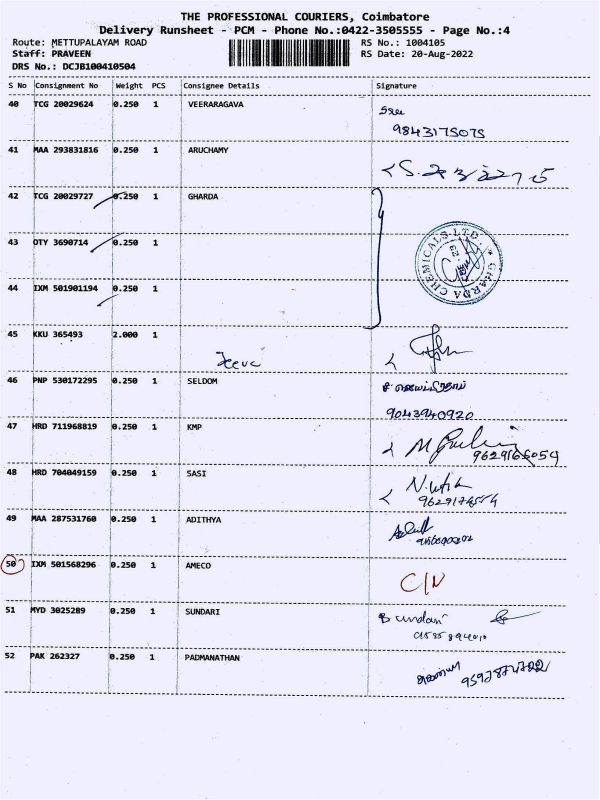 THE PROFESSIONAL COURIERS, Coimbatore
Delivery Runsheet - PCM - Phone No.:0422-3505555 - Page No.:4
Route: METTUPALAYAM ROAD RS No.: 1004105
Staff: PRAVEEN RS Date: 20-Aug-2022
DRS No.: DCJB100410504
S No Consignment No Weight PCS Consignee Details Signature
40 TCG 20029624 0.250 1 VEERARAGAVA
9843175075
41 MAA 293831816 0.250 1 ARUCHAMY
42 TCG 20029727 0.250 1 GHARDA
GHARDA CHEMICALS LTD.
43 OTY 3690714 0.250 1
44 IXM 501901194 0.250 1
45 KKU 365493 2.000 1
Jeeva
46 PNP 530172295 0.250 1 SELDOM
9043940920
47 HRD 711968819 0.250 1 KMP
48 HRD 704049159 0.250 1 SASI
49 MAA 287531760 0.250 1 ADITHYA
50 IXM 501568296 0.250 1 AMECO
C/N
51 MYD 3025289 0.250 1 SUNDARI
52 PAK 262327 0.250 1 PADMANATHAN